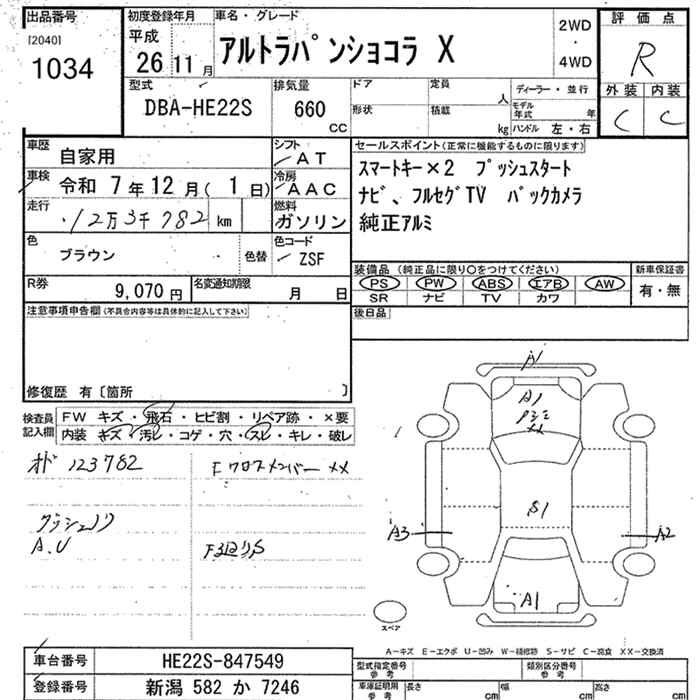 出品番号
[2040]
1034
初度登録年月
平成
26 11 月
車名・グレード
アルトラパンショコラ X
2WD
・
4WD
評価点
R
外装 内装
C C
型式
DBA-HE22S
排気量
660
CC
ドア
形状
定員
人
積載
kg
ディーラー・並行
モデル年式
年
ハンドル 左・右
車歴
自家用
シフト
AT
車検
令和 7年 12月( 1日)
冷房
AAC
走行
12万3千782 km
燃料
ガソリン
色
ブラウン
色替
色コード
ZSF
R券
9,070 円
名変通知期限
月 日
セールスポイント(正常に機能するものに限ります)
スマートキー×2 プッシュスタート
ナビ、フルセグTV バックカメラ
純正アルミ
装備品 (純正品に限り○をつけてください)
PS PW ABS エアB AW
SR ナビ TV カワ
新車保証書
有・無
後日品
注意事項申告欄(不具合内容等は具体的に記入して下さい)
修復歴 有〔箇所 〕
検査員
記入欄
FW キズ・飛石・ヒビ割・リペア跡・×要
内装 キズ・汚レ・コゲ・穴・スレ・キレ・破レ
メド 123782
Fクロスメンバー ××
A.U
A1
A1
××
S1
A3
A2
A1
スペア
A-キズ E-エクボ U-凹み W-補修跡 S-サビ C-腐食 XX-交換済
車台番号
HE22S-847549
登録番号
新潟 582 か 7246
型式指定番号
参考
類別区分番号
参考
車庫証明用
参考
長さ
cm
幅
cm
高さ
cm